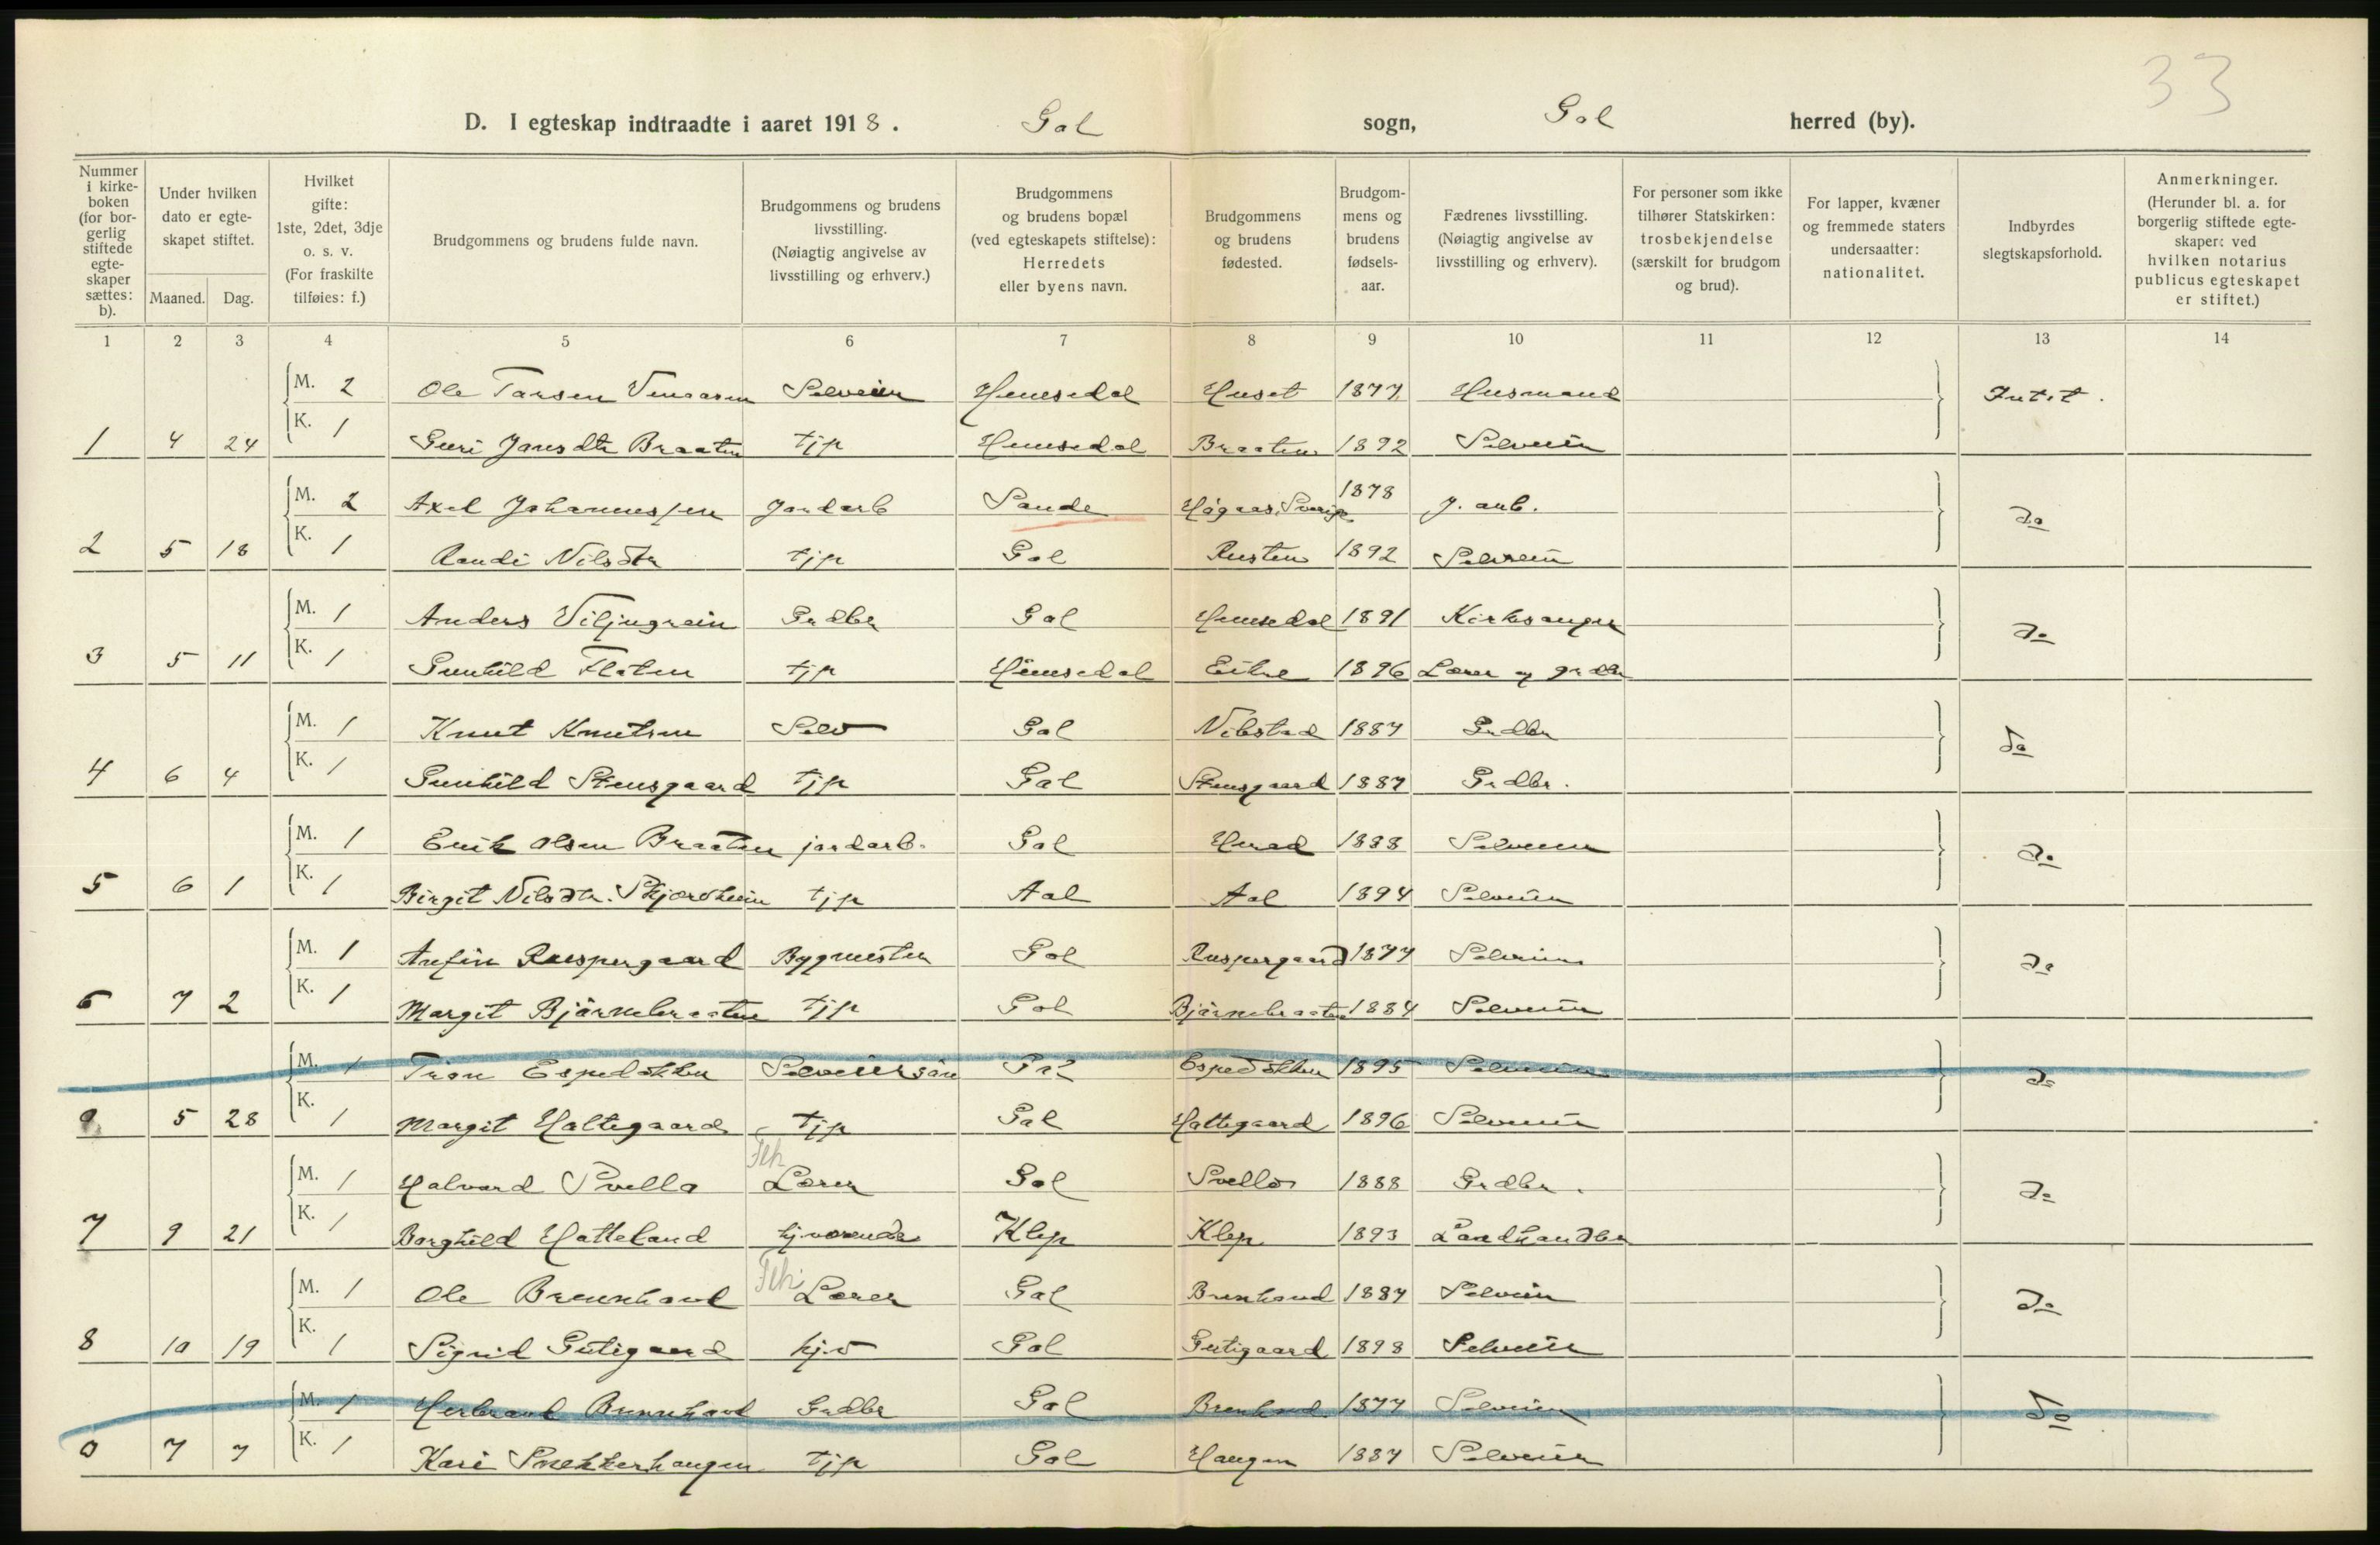 33
D. I egteskap indtraadte i aaret 1918. Gol sogn, Gol herred (by).
Nummer i kirke-boken (for bor-gerlig stiftede egte-skaper sættes: b).
Under hvilken dato er egte-skapet stiftet.
Maaned. Dag.
Hvilket gifte: 1ste, 2det, 3dje o. s. v. (For fraskilte tilføies: f.)
Brudgommens og brudens fulde navn.
Brudgommens og brudens livsstilling. (Nøiagtig angivelse av livsstilling og erhverv.)
Brudgommens og brudens bopæl (ved egteskapets stiftelse): Herredets eller byens navn.
Brudgommens og brudens fødested.
Brudgom-mens og brudens fødsels-aar.
Fædrenes livsstilling. (Nøiagtig angivelse av livsstilling og erhverv).
For personer som ikke tilhører Statskirken: trosbekjendelse (særskilt for brudgom og brud).
For lapper, kvæner og fremmede staters undersaatter: nationalitet.
Indbyrdes slegtskapsforhold.
Anmerkninger. (Herunder bl. a. for borgerlig stiftede egte-skaper: ved hvilken notarius publicus egteskapet er stiftet.)
1 2 3 4 5 6 7 8 9 10 11 12 13 14
M. 2 Ole Larsen Selveier Hemsedal Huset 1877 Husmand Intet.
1 4 24 K. 1 Guri Braaten tjp Hemsedal Braaten 1892 Selveier
M. 2 Axel Johannessen Jordarb Sande Sverige 1878 J. arb. do
2 5 18 K. 1 Randi Nilsdtr tjp Gol Rusten 1892 Selveier
M. 1 Anders Viljugrein Grdbr Gol Hemsedal 1891 Kirkesanger do
3 5 11 K. 1 Gunhild Flaten tjp Hemsedal 1896 Lærer og grdbr
M. 1 Knut Knutsen Selv Gol Nibstad 1887 Grdbr do
4 6 4 K. 1 Gunhild Stensgaard tjp Gol Stensgaard 1887 Grdbr.
M. 1 Erik Olsen Braaten jordarb. Gol 1888 Selveier do
5 6 1 K. 1 Birgit Nilsdtr. Skjærsheim tjp Aal Aal 1894 Selveier
M. 1 Anfin Ruspergaard Bygmester Gol Ruspergaard 1877 Selveier do
6 7 2 K. 1 Margit Björnebraaten tjp Gol Björnebraaten 1884 Selveier
M. 1 Tron Espedokken Selveiersön Gol Espedokken 1895 Selveier do
0 5 28 K. 1 Margit Haltegaard tjp Gol Haltegaard 1896 Selveier
M. 1 Halvard Svello Lærer Gol Svello 1888 Grdbr. do
7 9 21 K. 1 Borghild Hatteland hj.værende Klep Klep 1893 Landhandler
M. 1 Ole Brennhovd Lærer Gol Brenhovd 1887 Selveier do
8 10 19 K. 1 Sigrid Gutigaard hjv Gol Gutigaard 1898 Selveier
M. 1 Herbrand Brennhovd Grdbr Gol Brenhovd 1877 Selveier do
0 7 7 K. 1 Kari Snekkerhaugen tjp Gol Haugen 1887 Selveier